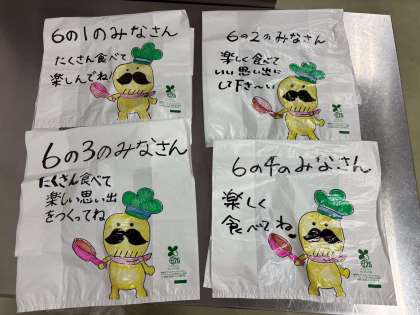 6の1のみなさん
たくさん食べて
楽しんでね!
6の2のみなさん
楽しく食べて
いい思い出に
して下さ〜い
6の3のみなさん
たくさん食べて
楽しい思い出
をつくってね
6の4のみなさん
楽しく
食べてね